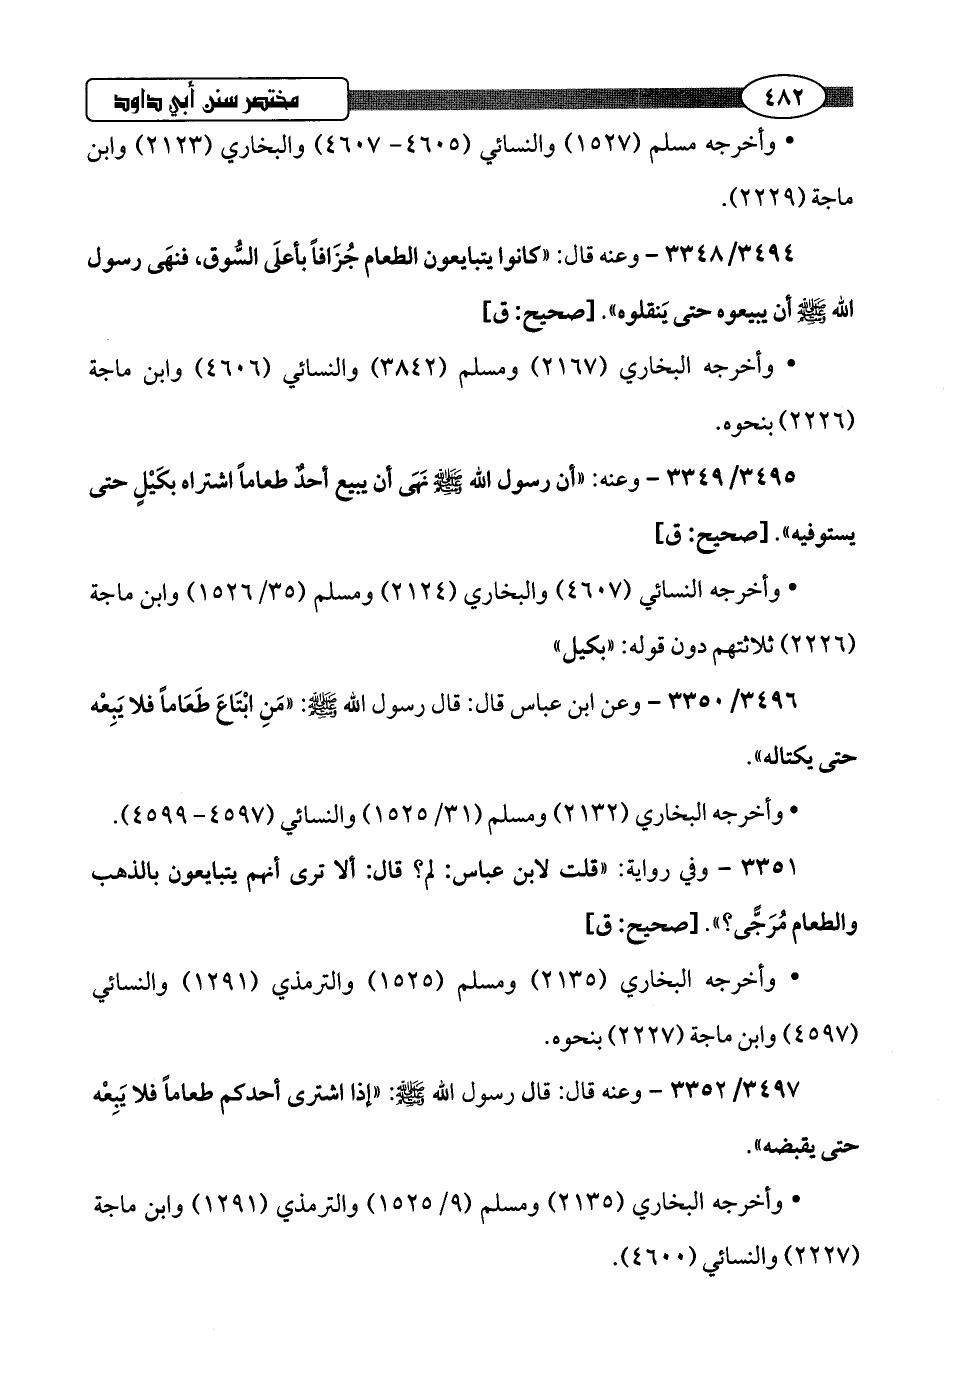 ٤٨٢
مختصر سنن أبي داود
• وأخرجه مسلم (١٥٢٧) والنسائي (٤٦٠٥- ٤٦٠٧) والبخاري (٢١٢٣) وابن
ماجة (٢٢٢٩).
٣٣٤٨/٣٤٩٤ - وعنه قال: «كانوا يتبايعون الطعام جُزَافاً بأعلَى السُّوق، فنهَى رسول
الله ﷺ أن يبيعوه حتى يَنقلوه». [صحيح: ق]
• وأخرجه البخاري (٢١٦٧) ومسلم (٣٨٤٢) والنسائي (٤٦٠٦) وابن ماجة
(٢٢٢٦) بنحوه.
٣٣٤٩/٣٤٩٥ - وعنه: «أن رسول الله ﷺ نَهَى أن يبيع أحدٌ طعاماً اشتراه بكَيْلٍ حتى
يستوفيه». [صحيح: ق]
• وأخرجه النسائي (٤٦٠٧) والبخاري (٢١٢٤) ومسلم (٣٥/ ١٥٢٦) وابن ماجة
(٢٢٢٦) ثلاثتهم دون قوله: «بكيل»
٣٣٥٠/٣٤٩٦ - وعن ابن عباس قال: قال رسول الله ﷺ: «مَنِ ابْتَاعَ طَعَاماً فلا يَبِعْه
حتى يكتاله».
• وأخرجه البخاري (٢١٣٢) ومسلم (٣١/ ١٥٢٥) والنسائي (٤٥٩٧- ٤٥٩٩).
٣٣٥١ - وفي رواية: «قلت لابن عباس: لم؟ قال: ألا ترى أنهم يتبايعون بالذهب
والطعام مُرَجًّى؟». [صحيح: ق]
• وأخرجه البخاري (٢١٣٥) ومسلم (١٥٢٥) والترمذي (١٢٩١) والنسائي
(٤٥٩٧) وابن ماجة (٢٢٢٧) بنحوه.
٣٣٥٢/٣٤٩٧ - وعنه قال: قال رسول الله ﷺ: «إذا اشترى أحدكم طعاماً فلا يَبِعْه
حتى يقبضه».
• وأخرجه البخاري (٢١٣٥) ومسلم (٩/ ١٥٢٥) والترمذي (١٢٩١) وابن ماجة
(٢٢٢٧) والنسائي (٤٦٠٠).